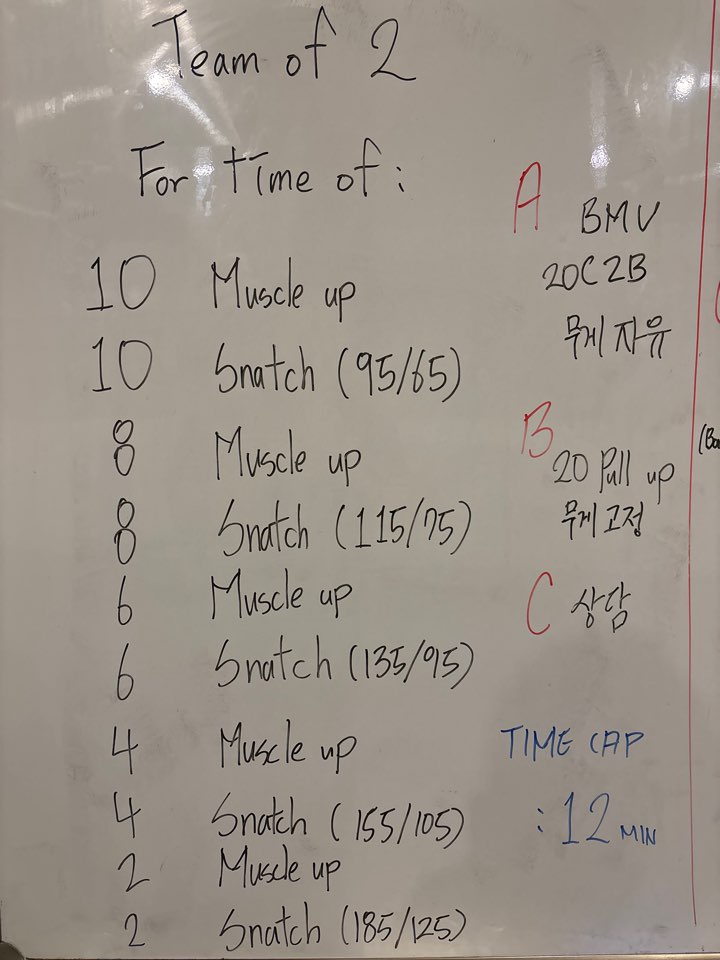 Team of 2
For time of :
10 Muscle up
10 Snatch (95/65)
8 Muscle up
8 Snatch (115/75)
6 Muscle up
6 Snatch (135/95)
4 Muscle up
4 Snatch (155/105)
2 Muscle up
2 Snatch (185/125)
A BMU
20C2B
무게 자유
B
20 Pull up
무게 고정
C 상담
TIME CAP
: 12 MIN